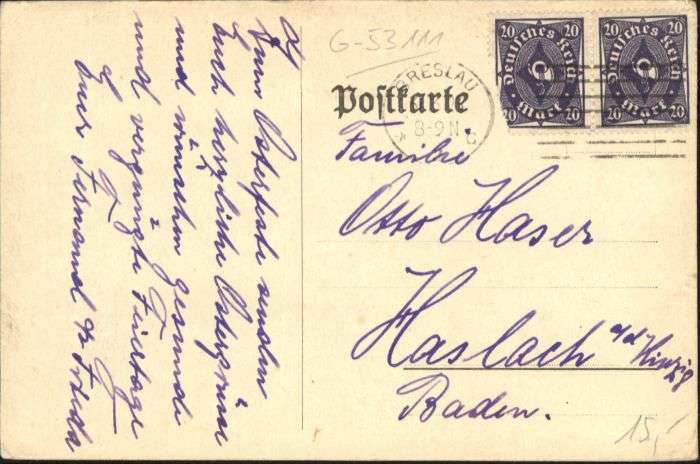 Zum Osterfeste senden
Euch herzliche Ostergrüsse
und wünschen gesunde
und vergnügte Feiertage
Euer Fernand &
G-53111
BRESLAU
8-9 N
Postkarte
20 20
Deutsches Reich
Mark
20 20
20 20
Deutsches Reich
Mark
20 20
Familie
Otto Haser
Haslach a/d Kinzig
Baden.
15,-